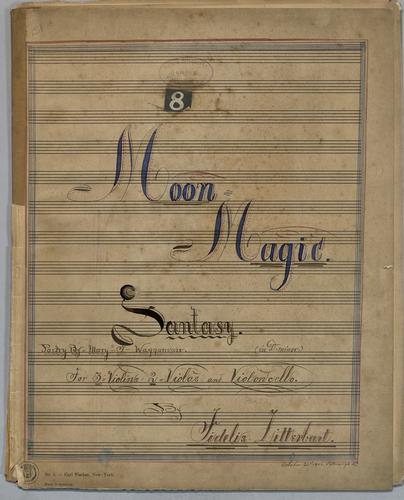 8
Moon=
=Magic.
Fantasy.
Poetry By Mary
(in D minor.)
For 3-Violins-2-Violas and Violoncello.
By
Fidelis Zitterbart.
Carl Fischer, New-York.